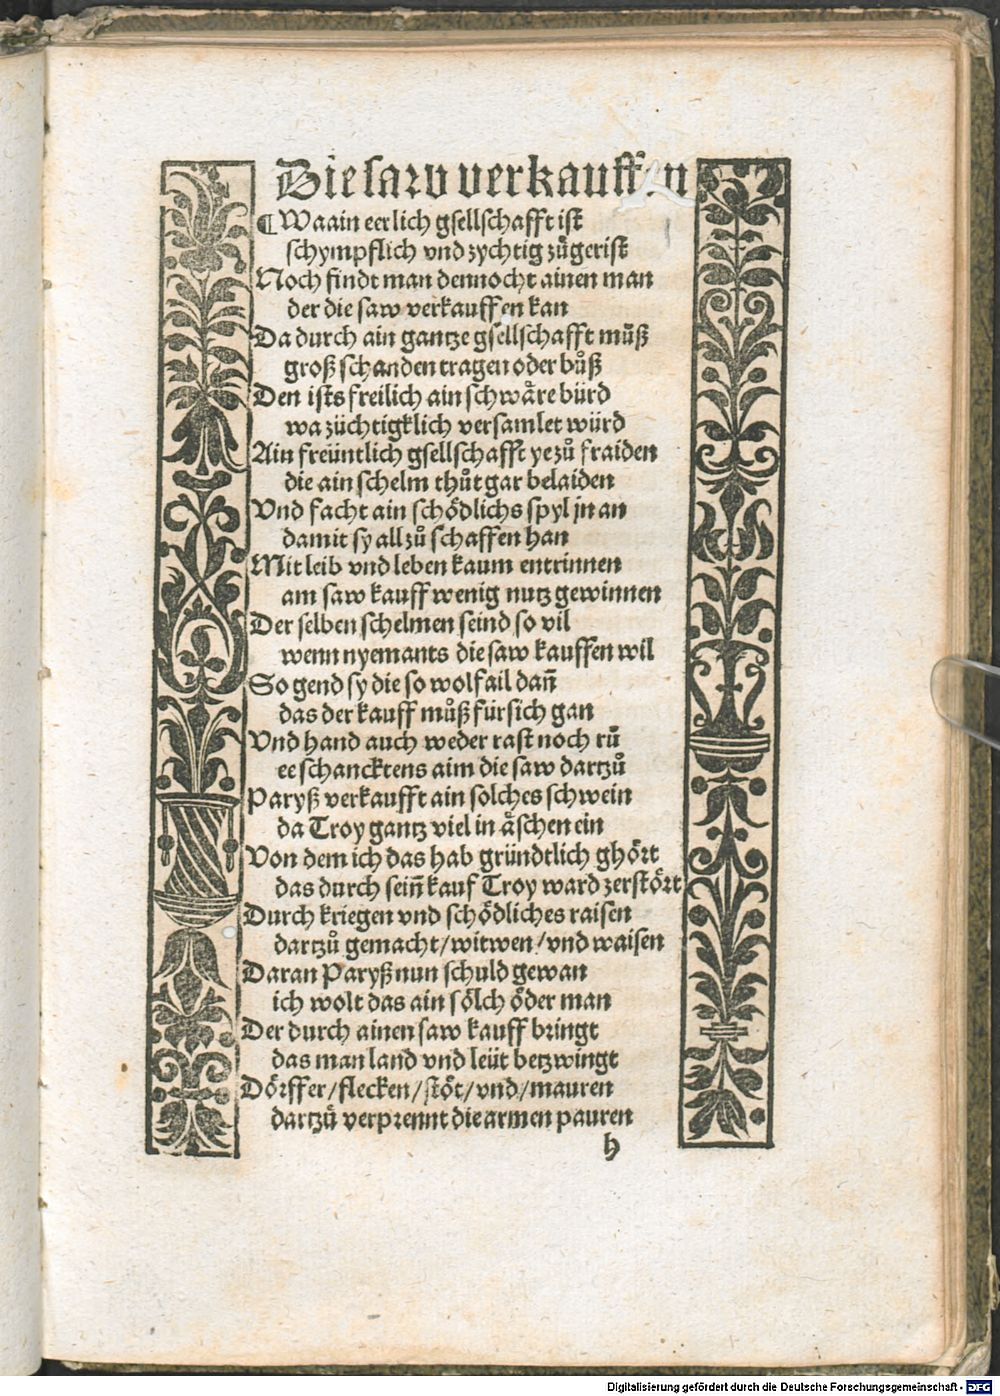 Die saw verkauffen
¶ Wa ain eerlich gsellschafft ist
schympflich vnd zychtig zůgerist
Noch findt man dennocht ainen man
der die saw verkauffen kan
Da durch ain gantze gsellschafft můß
groß schanden tragen oder bůß
Den ists freilich ain schwåre bürd
wa züchtigklich versamlet würd
Ain freüntlich gsellschafft ye zů fraiden
die ain schelm thůt gar belaiden
Vnd facht ain schödlichs spyl jn an
damit sy all zů schaffen han
Mit leib vnd leben kaum entrinnen
am saw kauff wenig nutz gewinnen
Der selben schelmen seind so vil
wenn nyemants die saw kauffen wil
So gend sy die so wolfail dañ
das der kauff můß für sich gan
Vnd hand auch weder rast noch rů
ee schancktens aim die saw dartzů
Paryß verkaufft ain solches schwein
da Troy gantz viel in åschen ein
Von dem ich das hab gründtlich ghört
das durch seiñ kauf Troy ward zerstört
Durch kriegen vnd schödliches raisen
dartzů gemacht/witwen/vnd waisen
Daran Paryß nun schuld gewan
ich wolt das ain sölch öder man
Der durch ainen saw kauff bringt
das man land vnd leüt betzwingt
Dörffer/flecken/stöt/vnd/mauren
dartzů verprennt die armen pauren
h
Digitalisierung gefördert durch die Deutsche Forschungsgemeinschaft - DFG